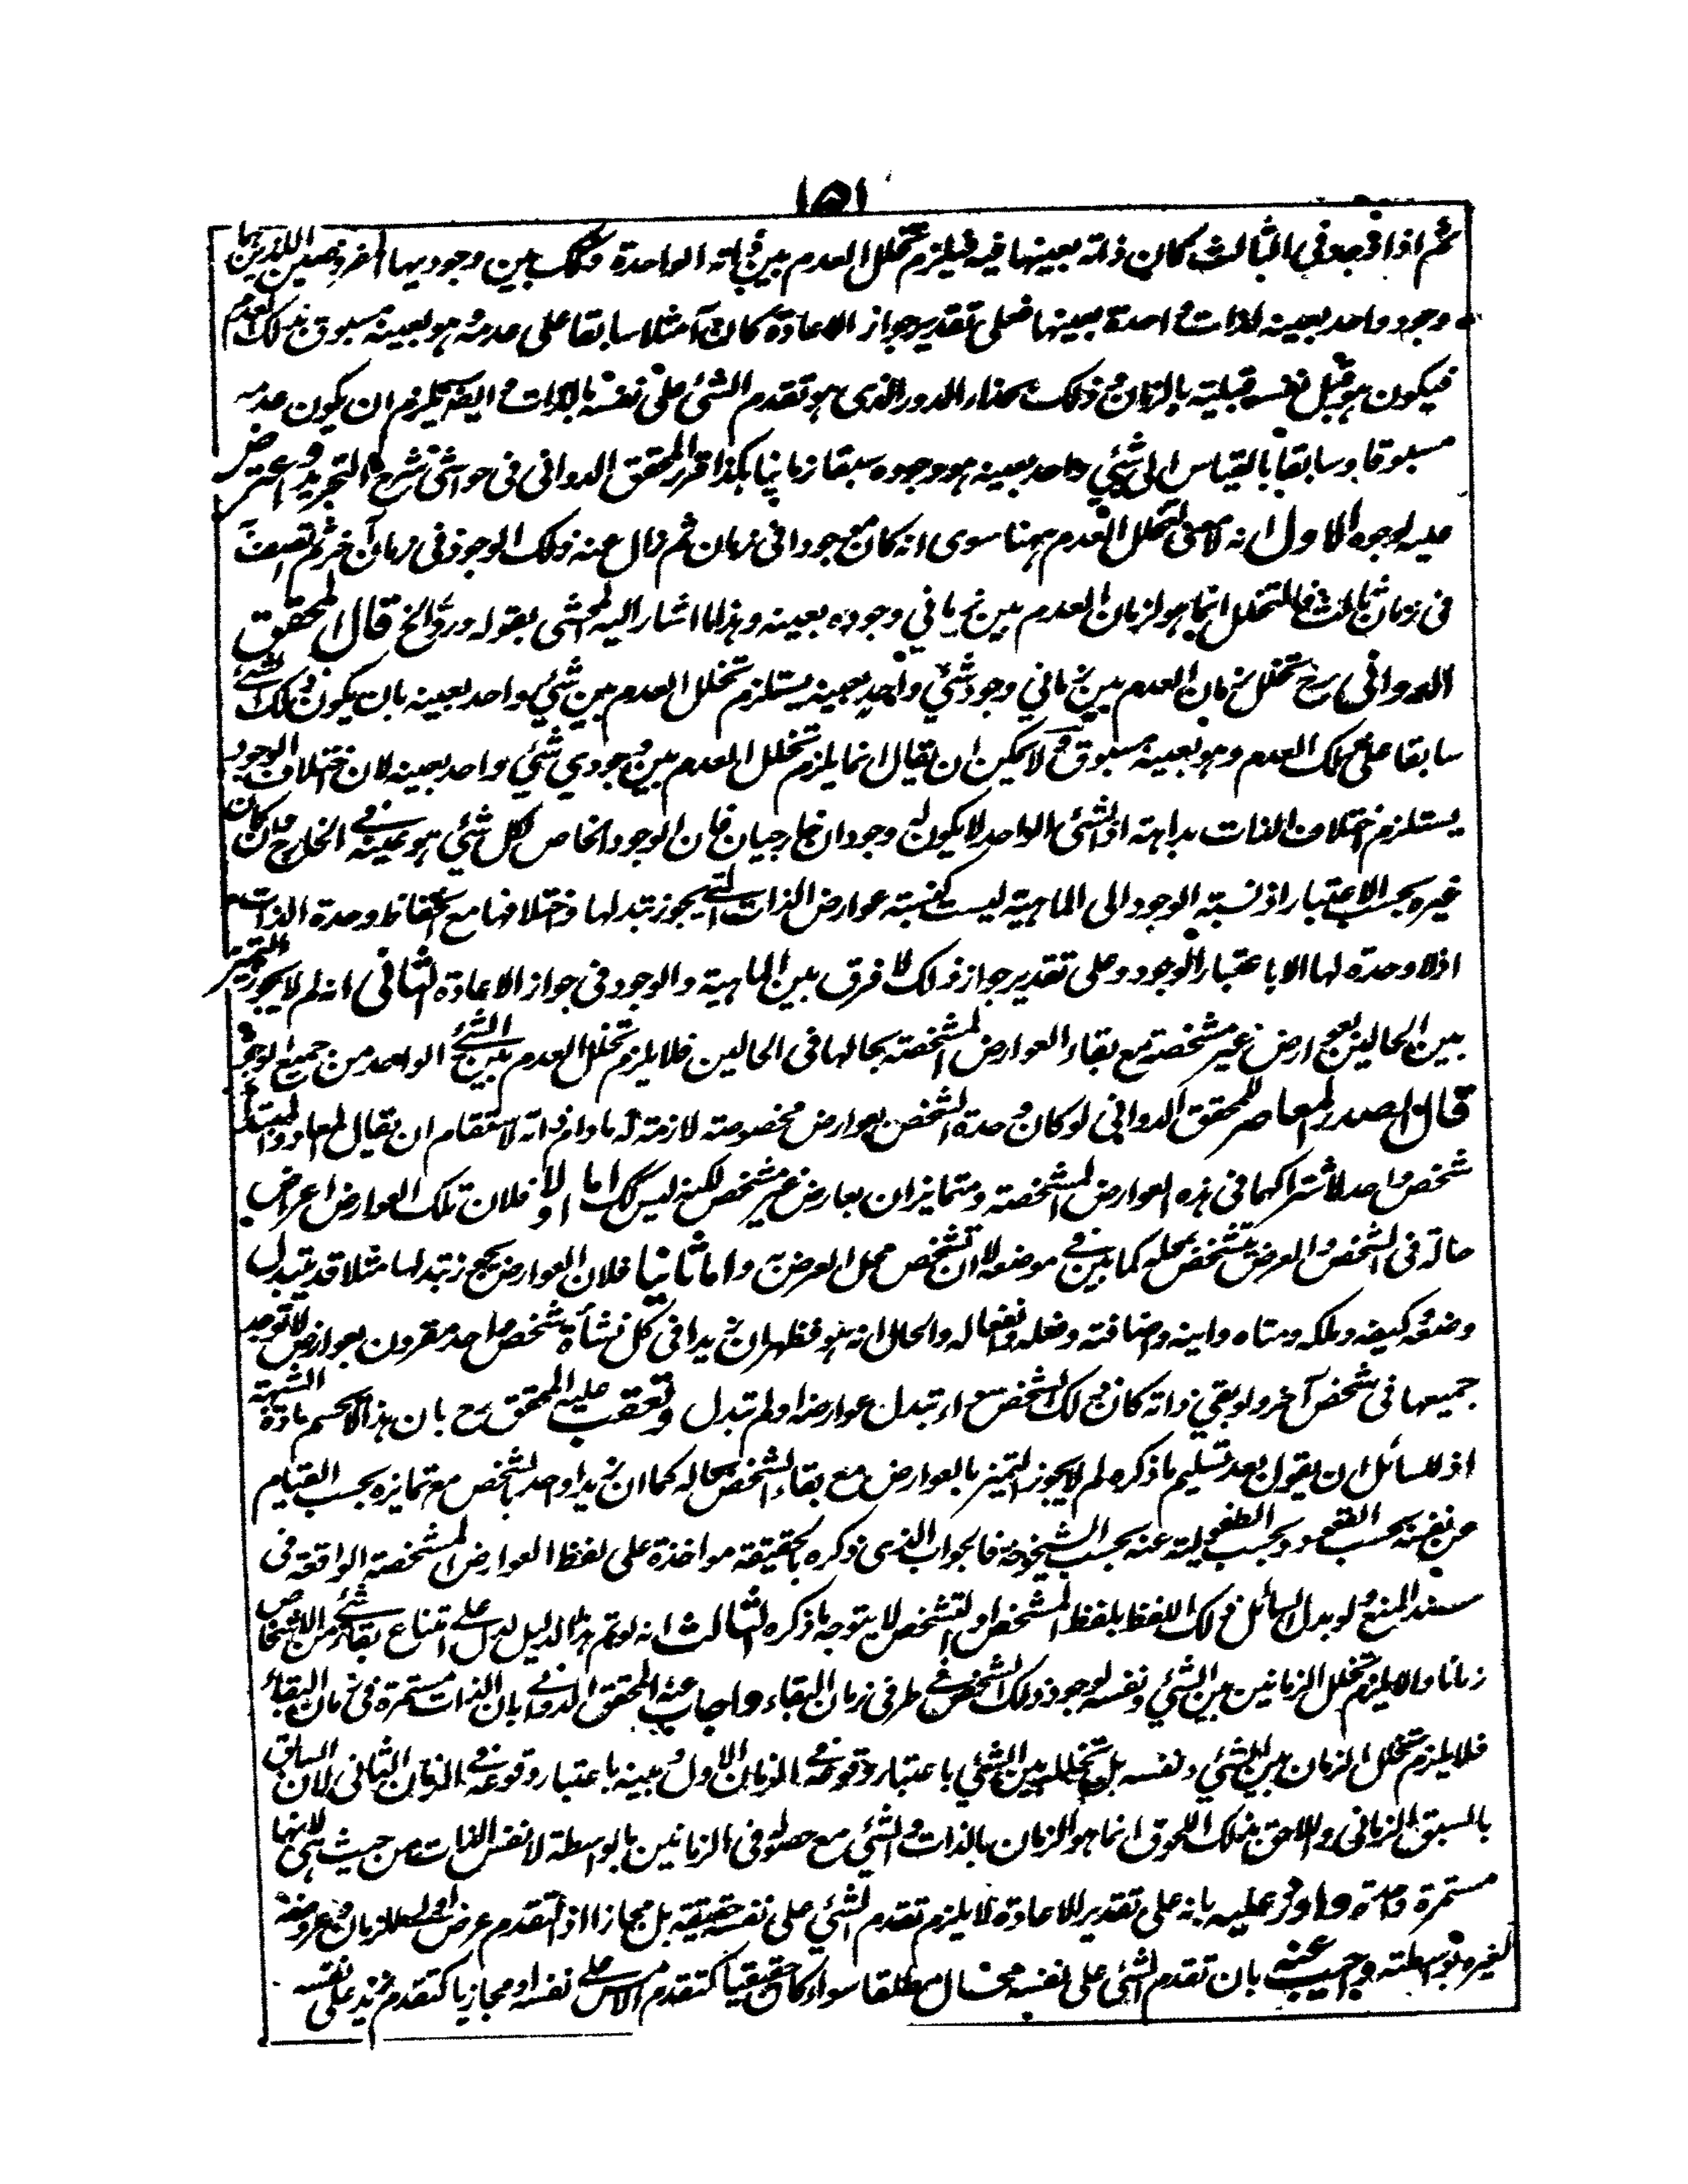 ١٥١
ثم اذا وجد فى الثالث كان ذاته بعينها فيه فيلزم تخلل العدم بين ذاته الواحدة وكك بين وجوديها المفروضين اللذين هما
وجود واحد بعينه لذات واحدة بعينها فعلى تقدير جواز الاعادة كان آ مثلا سابقا على عدمه وهو بعينه مسبوق بذلك العدم
فيكون هو قبل نفسه قبلية بالزمان وذلك بحذاء الدور الذى هو تقدم الشئ على نفسه بالذات وايضا يلزم ان يكون عدمه
مسبوقا وسابقا بالقياس الى شئي واحد بعينه هو وجوده سبقا زمانيا هكذا قرر المحقق الدوانى فى حواشى شرح التجريد واعترض
عليه بوجوه الاول انه لا معنى لتخلل العدم ههنا سوى انه كان موجودا فى زمان ثم زال عنه ذلك الوجود فى زمان آخر ثم اتصف
فى زمان ثالث فالمتخلل انما هو لزمان العدم بين زماني وجوده بعينه وهذا ما اشار اليه المحشى بقوله ورد الخ قال المحقق
الدوانى رح تخلل زمان العدم بين زماني وجود شئي واحد بعينه يستلزم تخلل العدم بين شئي واحد بعينه بان يكون ذلك الشئ
سابقا على ذلك العدم وهو بعينه مسبوق ولا يمكن ان يقال انما يلزم تخلل العدم بين وجودي شئي واحد بعينه لان اختلاف الوجود
يستلزم اختلاف الذات بداهته اذ الشئ الواحد لا يكون له وجودان خارجيان فان الوجود الخاص لكل شئي هو عينه في الخارج وان كان
غيره بحسب الاعتبار اذ نسبته الوجود الى الماهية ليست كنسبته عوارض الذات التي يجوز تبدلها واختلافها مع انحفاظ وحدة الذات
اذ لا وحدة لها الا باعتبار الوجود وعلى تقدير جواز ذلك لا فرق بين الماهية والوجود فى جواز الاعادة الثانى انه لم لا يجوز التميز
بين الحالين بعوارض غير مشخصته مع بقاء العوارض المشخصته بحالها فى الحالين فلا يلزم تخلل العدم بين الشئ الواحد من جميع الوجوه
قال الصدر المعاصر للمحقق الدوانى لو كان وحدة الشخص بعوارض مخصوصته لازمته له ما دام ذاته لاستقام ان يقال المعاد والمبتدأ
شخص واحد لاشتراكهما فى هذه العوارض المشخصته ومتمايزان بعارض غير مشخص لكنه ليس كك اما اولا فلان تلك العوارض اعراض
حالة فى الشخص والعرض يتشخص بمحله كما بين في موضعه لا ان تشخص محل العرض به واما ثانيا فلان العوارض يجوز تبدلها مثلا قد يتبدل
وضعه وكيفه وملكه ومتاه واينه واضافته وفعله وانفعاله والحال انه هو فظهر ان زيدا فى كل نشأة شخص واحد مقرون بعوارض لا توجد
جميعها فى شخص آخر ولو بقي ذاته كان ذلك الشخص سواء تبدل عوارضه او لم تبدل وتعقب عليه المحقق رح بان هذا لا يحسم مادة الشبهة
اذ للسائل ان يقول بعد تسليم ما ذكره لم لا يجوز التميز بالعوارض مع بقاء الشخص بحاله كما ان زيدا واحد بالشخص مع تمايزه بحسب القيام
عن نفسه بحسب القعود وبحسب الطفولية عنه بحسب الشيخوخة فالجواب الذى ذكره بالحقيقة مواخذة على لفظ العوارض المشخصته الواقعة فى
سند المنع ولو بدل السائل ذلك اللفظ بلفظ المشخص او التشخص لا يتوجه ما ذكره الثالث انه لو تم هذا الدليل لدل على امتناع بقاء شئ من الاشخاص
زمانا والا يلزم تخلل الزمانين بين الشئي ونفسه لوجود ذلك الشخص في طرفى زمان البقاء واجاب عنه المحقق الدواني بان الذات مستمرة فى زمان البقاء
فلا يلزم تخلل الزمان بين الشئي ونفسه بل تخلله بين الشئي باعتبار وقوعه في الزمان الاول وبينه باعتبار وقوعه في الزمان الثانى لان السابق
بالسبق الزمانى واللاحق بذلك اللحوق انما هو الزمان بالذات والشئي مع حصوله فى الزمانين بالواسطة لا نفس الذات من حيث هى لانها
مستمرة واورد عليه بانه على تقدير الاعادة لا يلزم تقدم الشئي على نفسه حقيقته بل مجازا اذ التقدم عرض اولى للزمان وعروضه
لغيره بواسطته واجيب عنه بان تقدم الشئ على نفسه محال مطلقا سواء كان حقيقيا كتقدم الامس على نفسه او مجازيا كتقدم زيد على نفسه